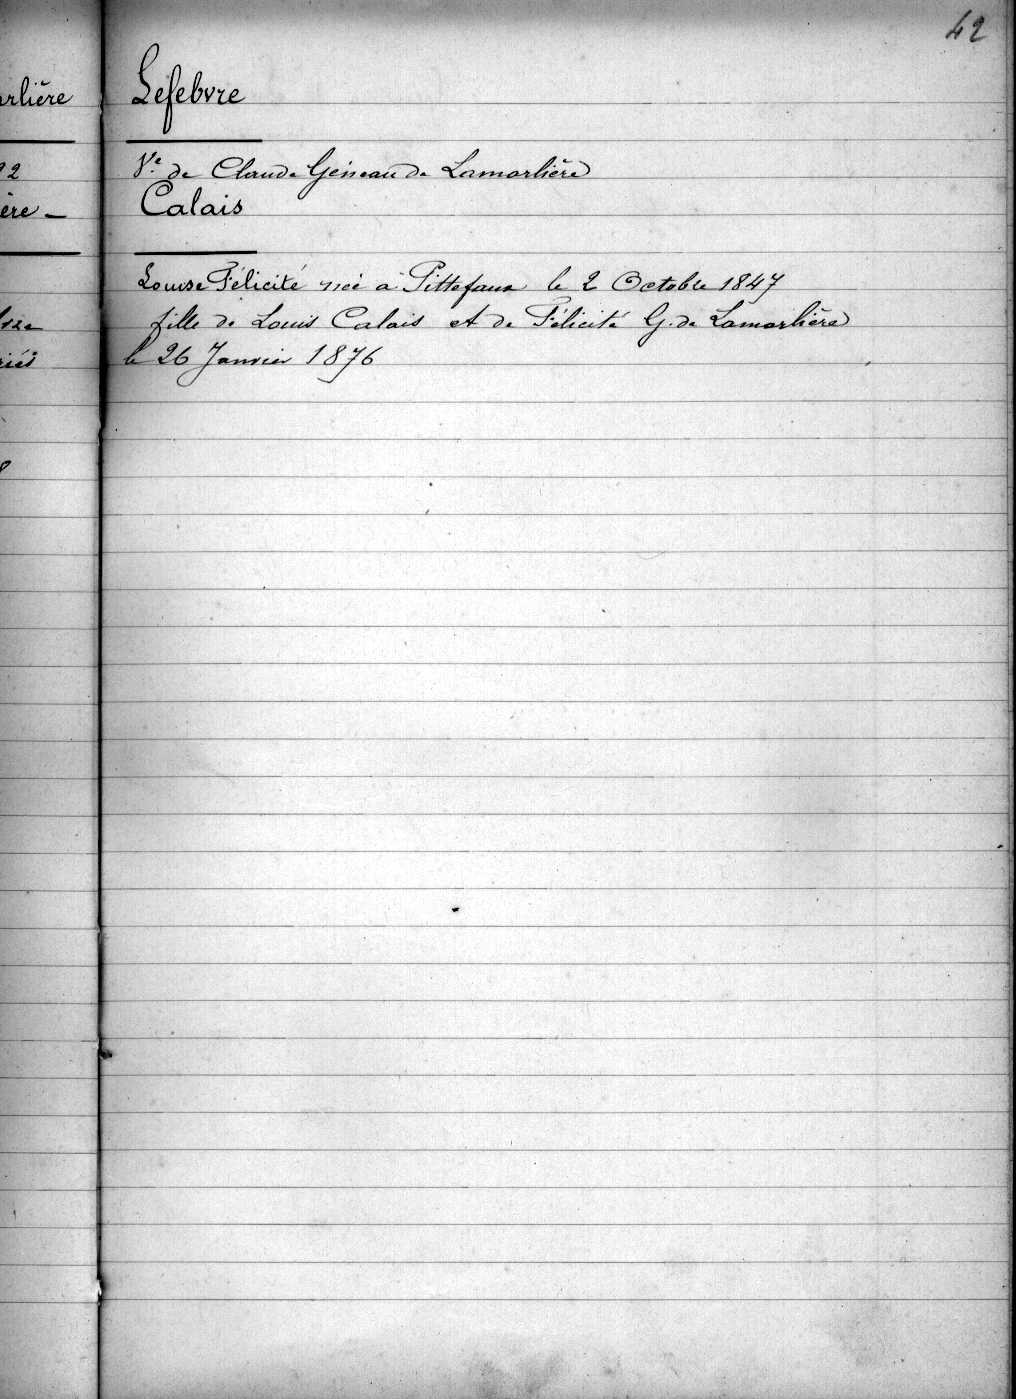 42
Lefebvre
Ve de Claude Géneau de Lamarlière
Calais
Louise Félicité née à Pittefaux le 2 Octobre 1847
fille de Louis Calais et de Félicité G. de Lamarlière
le 26 Janvier 1876
rlière
22
ère -